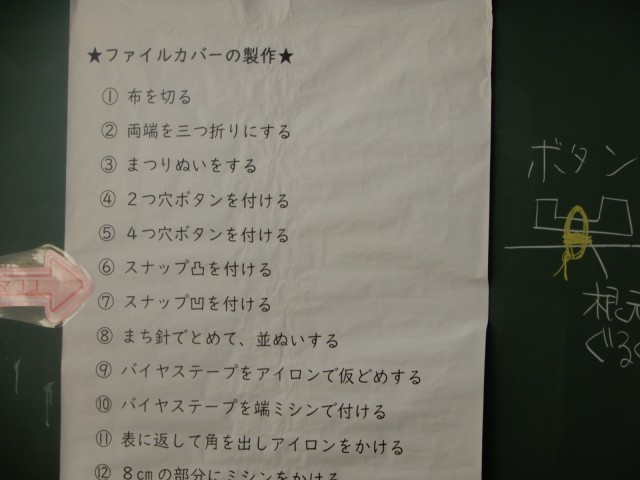 ★ファイルカバーの製作★
① 布を切る
② 両端を三つ折りにする
③ まつりぬいをする
④ 2つ穴ボタンを付ける
⑤ 4つ穴ボタンを付ける
⑥ スナップ凸を付ける
⑦ スナップ凹を付ける
⑧ まち針でとめて、並ぬいする
⑨ バイヤステープをアイロンで仮どめする
⑩ バイヤステープを端ミシンで付ける
⑪ 表に返して角を出しアイロンをかける
⑫ 8cmの部分にミシンをかける
ボタン
根元
ぐるぐ